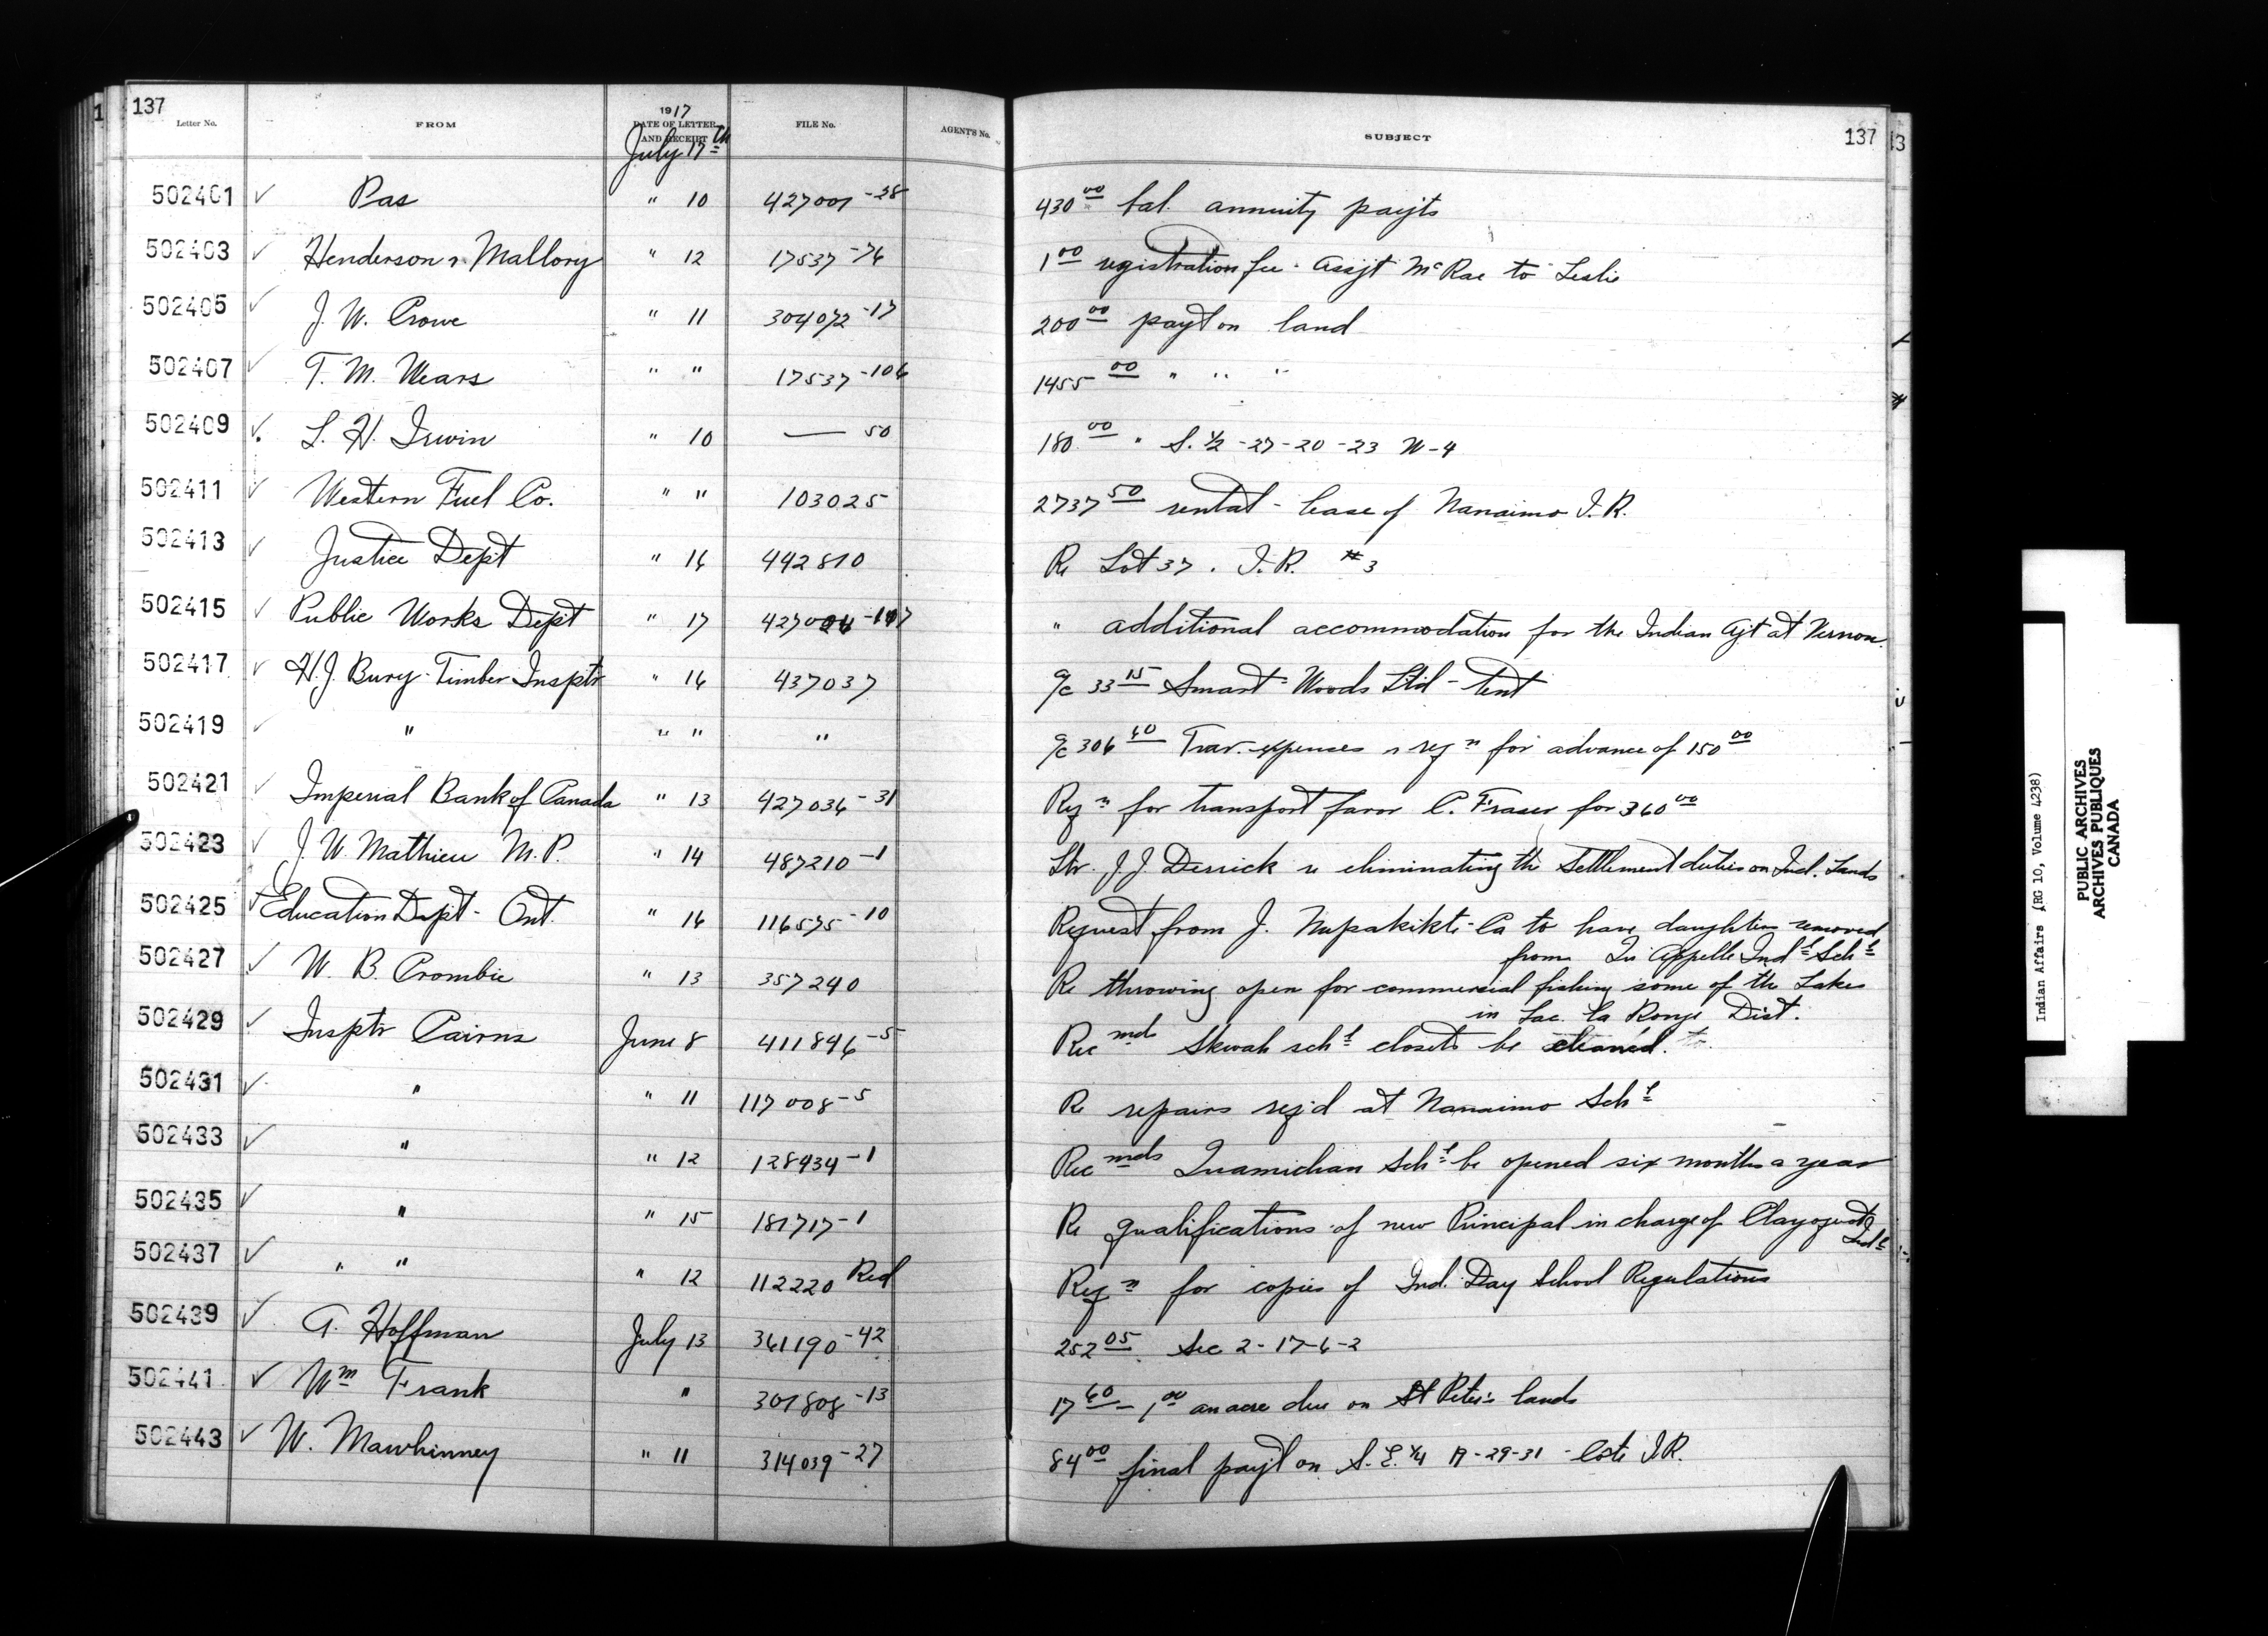 137
Letter No. FROM 1917 DATE OF LETTER AND RECEIPT FILE No. AGENT'S No. SUBJECT 137
July 17th
502401 ✓ Pas " 10 427001-38 430 00 bal. annuity payts
502403 ✓ Henderson & Mallory " 12 17537-76 1 00 registration fee - Assjt McRae to Leslie
502405 ✓ J. W. Crowe " 11 304072-17 200 00 payt on land
502407 ✓ T. M. Mears " " 17537-106 1455 00 " " "
502409 ✓ L. H. Irwin " 10 — 50 180 00 " S. ½ -27-20-23 W-4
502411 ✓ Western Fuel Co. " " 103025 2737 50 rental - lease of Nanaimo I.R.
502413 ✓ Justice Dept " 16 442810 Re Lot 37. I.R. #3
502415 ✓ Public Works Dept " 17 " additional accommodation for the Indian Agt at Vernon.
502417 ✓ H.J. Bury - Timber Insptr " 16 437037 a/c 33 15 Smart-Woods Ltd - tent
502419 ✓ " " " " a/c 306 60 Trav. expenses & reqn for advance of 150 00
502421 ✓ Imperial Bank of Canada " 13 427036-31 Reqn for transport favor C. Fraser for 360 00
502423 ✓ J. W. Mathieu M.P. " 14 487210-1 Ltr. J.J. Derrick re eliminating the Settlement duties on Ind. Lands
502425 ✓ Education Dept - Ont. " 16 116575-10 Request from J. to have daughters removed
from Qu'Appelle Indl Schl
502427 ✓ W. B. Crombie " 13 357240 Re throwing open for commercial fishing some of the Lakes
in Lac la Ronge Dist.
502429 ✓ Insptr Cairns June 8 411846-5 Recmds Skwah schl closets be cleaned.
502431 ✓ " " 11 117008-5 Re repairs reqd at Nanaimo Schl
502433 ✓ " " 12 128434-1 Recmds Quamichan Schl be opened six months a year
502435 ✓ " " 15 181717-1 Re qualifications of new Principal in charge of Clayoquot
Indl
502437 ✓ " " " 12 112220 Red Reqn for copies of Ind. Day School Regulations
502439 ✓ A. Hoffman July 13 361190-42 252 05. Sec 2-17-6-2
502441 ✓ Wm Frank " 307808-13 17 60 - 1 00 an acre due on St Peter's lands
502443 ✓ W. Mawhinney " 11 314039-27 84 00 final payt on S.E.¼ 17-29-31 - Cote I.R.
Indian Affairs (RG 10, Volume 4238)
PUBLIC ARCHIVES
ARCHIVES PUBLIQUES
CANADA